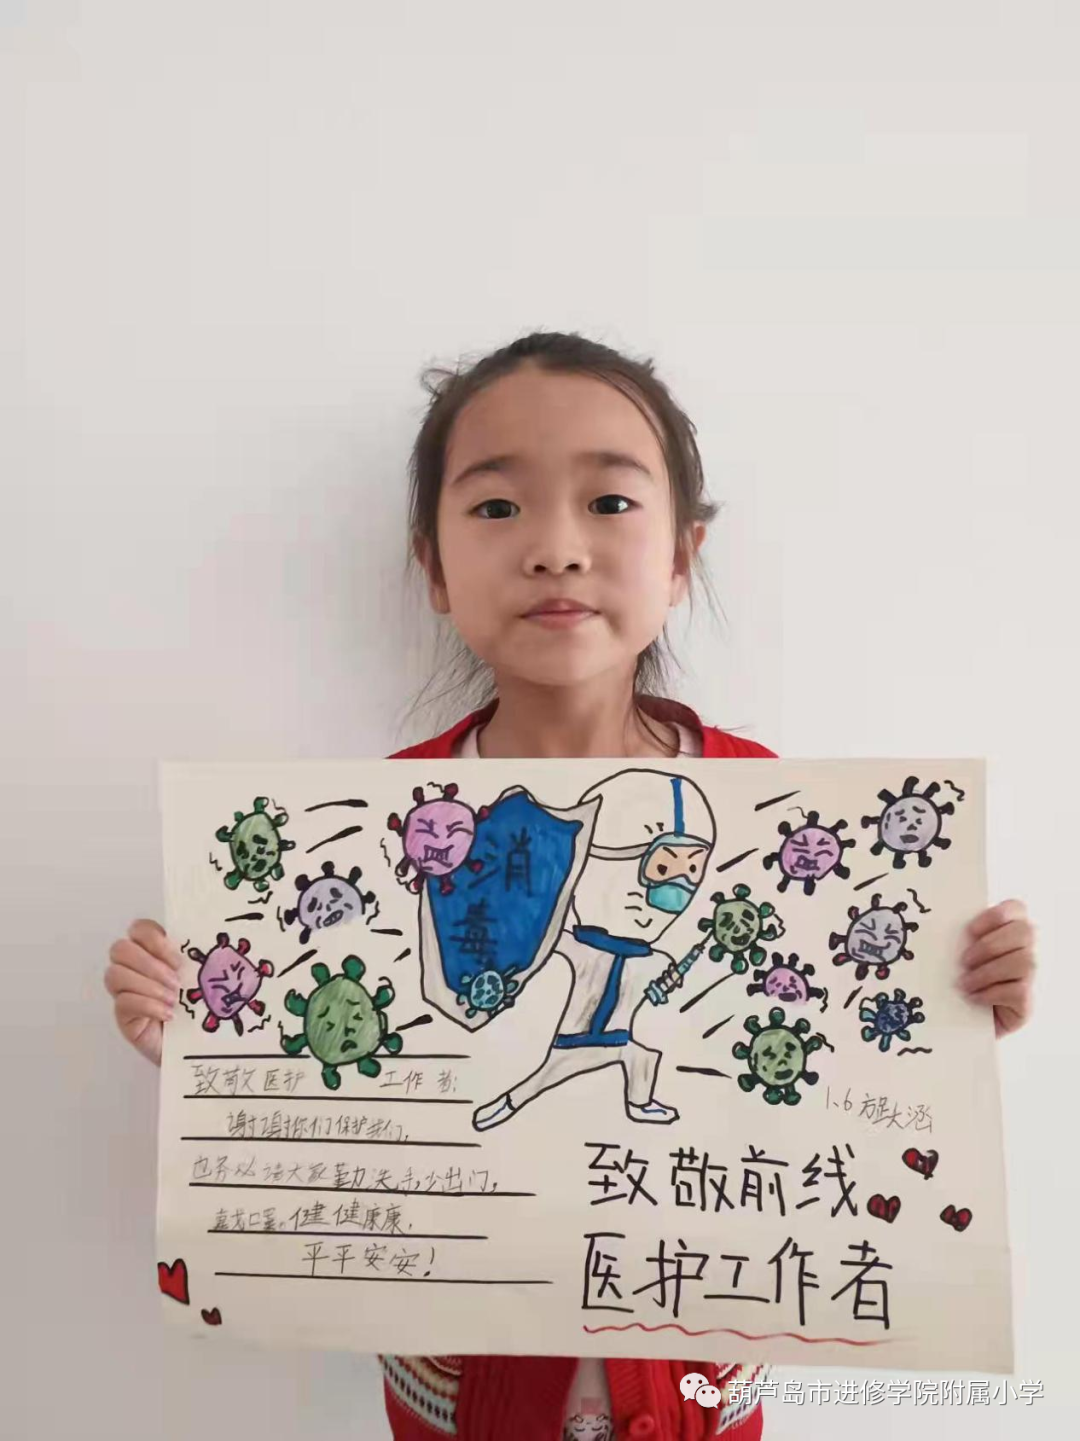 消
毒
致敬医护 工作者:
谢谢你们保护我们,
也务必请大家勤洗手,少出门,
戴口罩。健健康康,
平平安安!
1、6
致敬前线
医护工作者
葫芦岛市进修学院附属小学